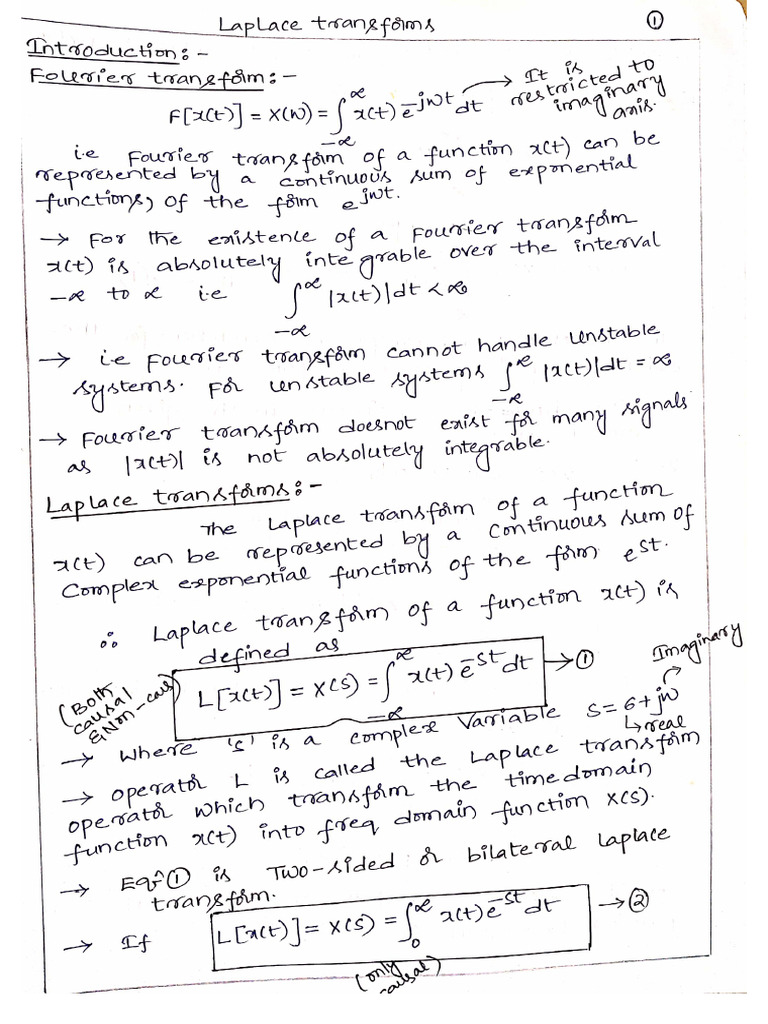 Laplace transforms ①
Introduction:-
Fourier transform:-
F[x(t)] = X(w) = ∫_{-∞}^{∞} x(t) e^{-jwt} dt → It is restricted to imaginary axis.
i.e Fourier transform of a function x(t) can be
represented by a continuous sum of exponential
functions, of the form e^{jwt}.
→ For the existence of a Fourier transform
x(t) is absolutely integrable over the interval
-∞ to ∞ i.e ∫_{-∞}^{∞} |x(t)|dt < ∞
→ i.e Fourier transform cannot handle unstable
systems. For unstable systems ∫_{-∞}^{∞} |x(t)|dt = ∞
→ Fourier transform doesnot exist for many signals
as |x(t)| is not absolutely integrable.
Laplace transforms:-
The Laplace transform of a function
x(t) can be represented by a continuous sum of
Complex exponential functions of the form e^{st}.
∴ Laplace transform of a function x(t) is
defined as
(Both causal & Non-cau) L[x(t)] = X(s) = ∫_{-∞}^{∞} x(t) e^{-st} dt → ①
Imaginary
→ Where 's' is a complex variable s = σ + jw
↳ real
→ operator L is called the Laplace transform
operator which transform the time domain
function x(t) into freq domain function X(s).
→ Eqⁿ ① is Two-sided or bilateral Laplace
transform.
→ If L[x(t)] = X(s) = ∫_{0}^{∞} x(t) e^{-st} dt → ②
(only causal)